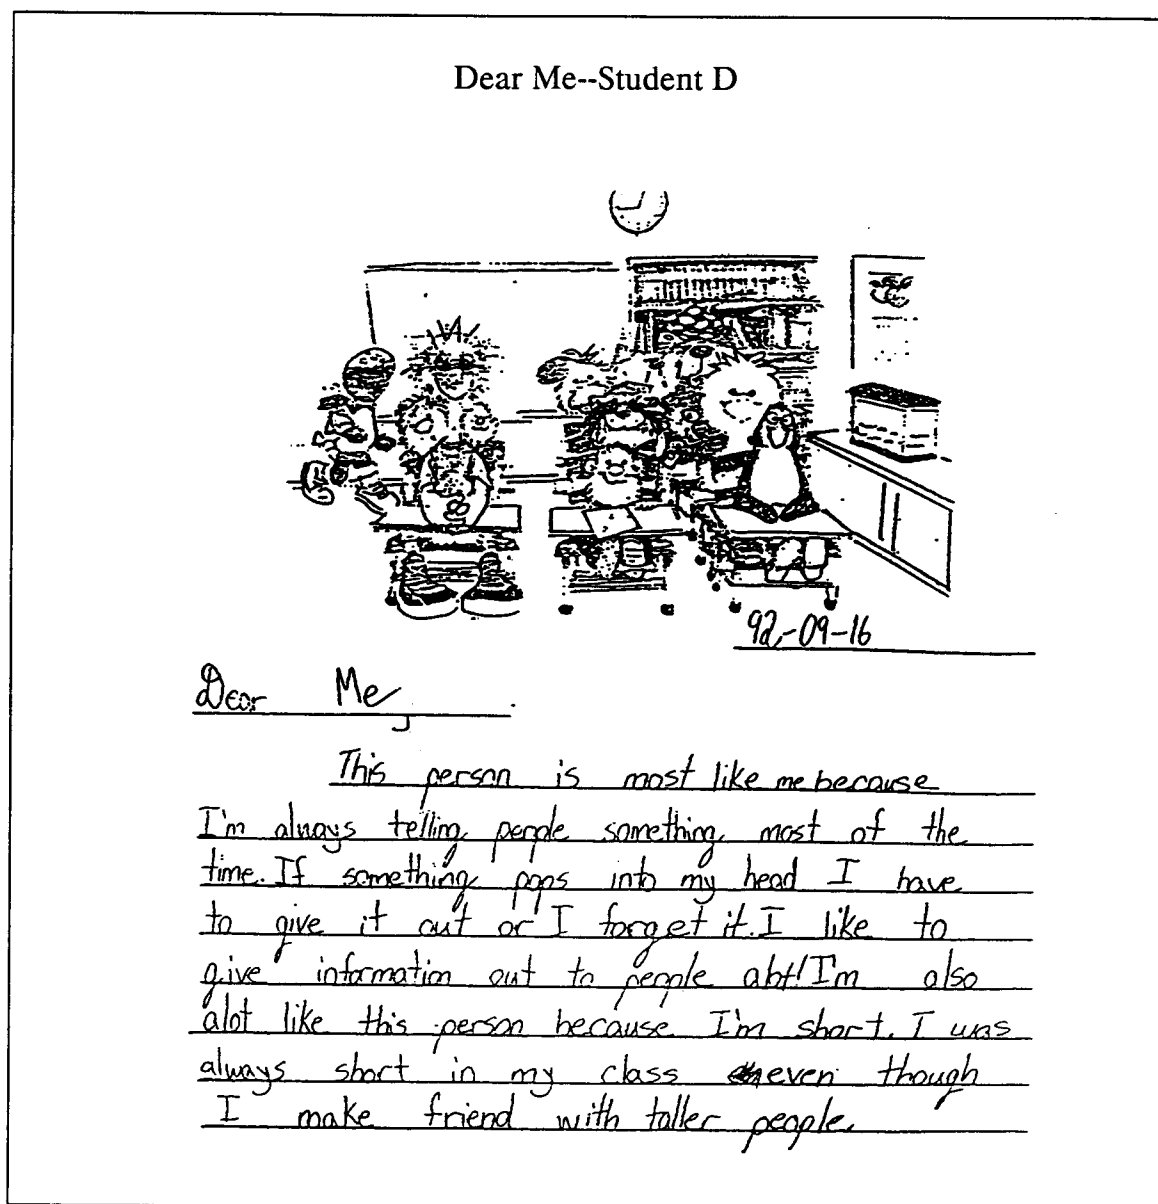 Dear Me--Student D
92-09-16
Dear Me,
This person is most like me because
I'm always telling people something most of the
time. If something pops into my head I have
to give it out or I forget it. I like to
give information out to people alot! I'm also
alot like this person because I'm short. I was
always short in my class even though
I make friend with taller people.